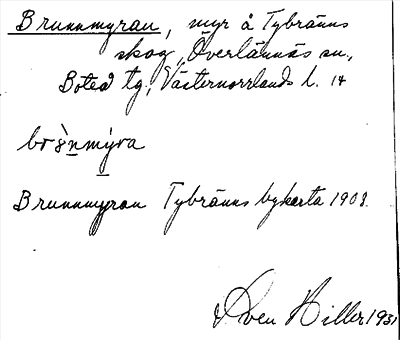 Brunnmyran, myr å Tybränns
skog, Överlännäs sn.,
Boteå tg., Västernorrlands l. 14
Brunnmyran Tybränns bykarta 1903.
Sven Hiller 1931